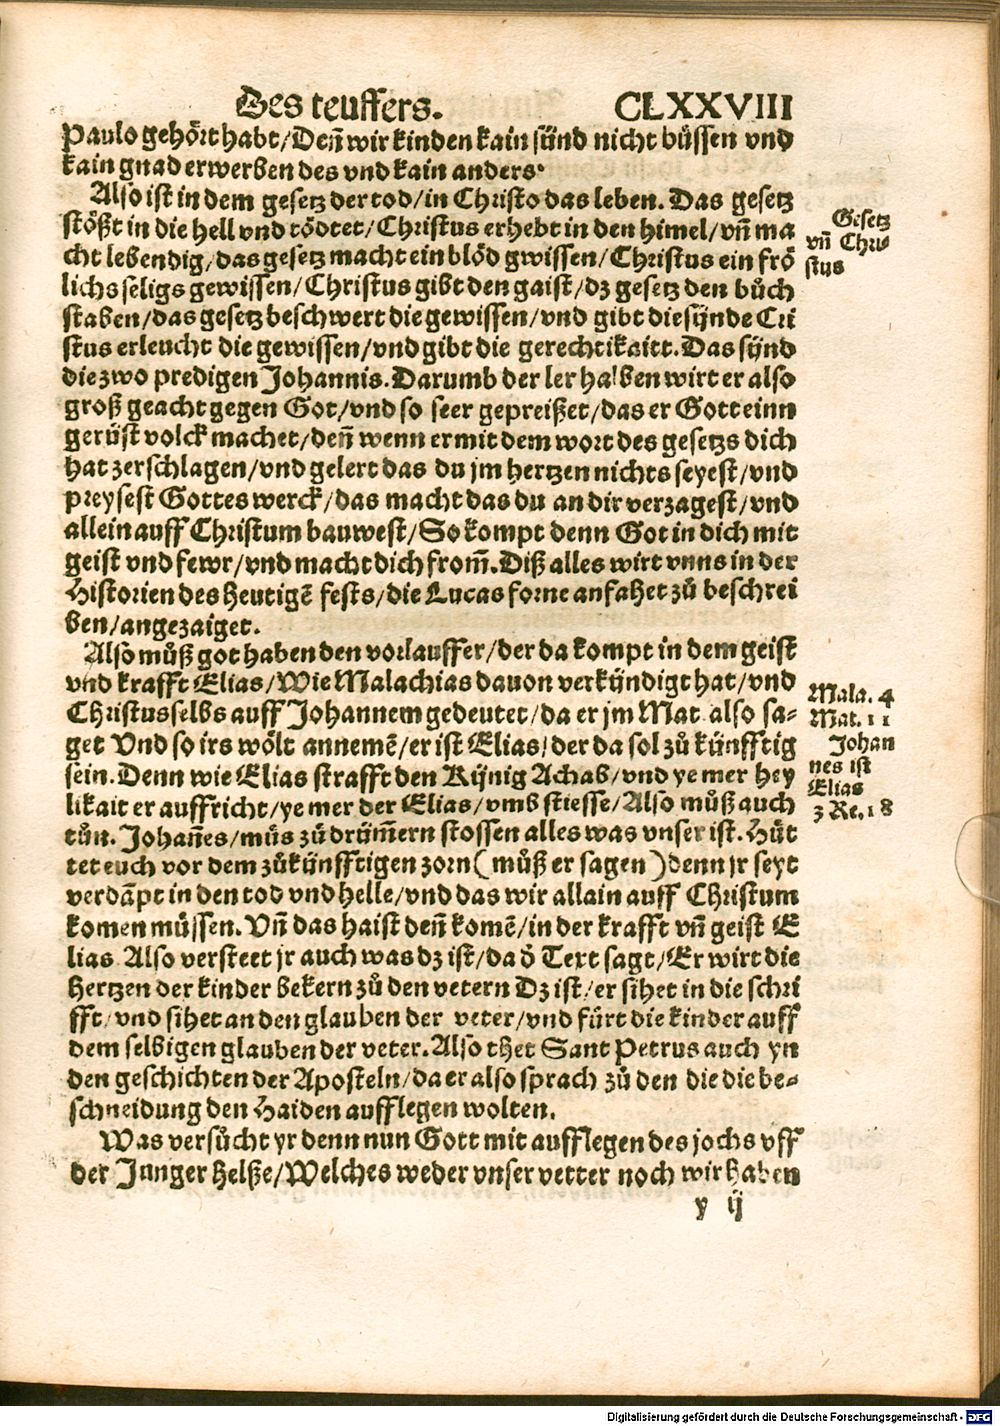 Des teuffers. CLXXVIII
Paulo gehört habt/Deñ wir kinden kain sünd nicht büssen vnd
kain gnad erwerben des vnd kain anders.
Also ist in dem gesetz der tod/in Christo das leben. Das gesetz
stößt in die hell vnd tödtet/Christus erhebt in den himel/vñ ma
cht lebendig/das gesetz macht ein blöd gwissen/Christus ein frö
lichs seligs gewissen/Christus gibt den gaist/dz gesetz den bůch
staben/das gesetz beschwert die gewissen/vnd gibt die sÿnde Cri
stus erleucht die gewissen/vnd gibt die gerechtikaitt. Das sÿnd
die zwo predigen Johannis. Darumb der ler halben wirt er also
groß geacht gegen Got/vnd so seer gepreißet/das er Gott einn
gerüst volck machet/deñ wenn er mit dem wort des gesetzs dich
hat zerschlagen/vnd gelert das du jm hertzen nichts seyest/vnd
preysest Gottes werck/das macht das du an dir verzagest/vnd
allein auff Christum bauwest/So kompt denn Got in dich mit
geist vnd fewr/vnd macht dich from̃. Diß alles wirt vnns in der
Historien des heutigē fests/die Lucas forne anfahet zů beschrei
ben/angezaiget.
Also můß got haben den vorlauffer/der da kompt in dem geist
vnd krafft Elias/Wie Malachias dauon verkÿndigt hat/vnd
Christus selbs auff Johannem gedeutet/da er jm Mat also sa-
get Vnd so irs wölt annemē/er ist Elias/der da sol zů kÿnfftig
sein. Denn wie Elias strafft den Kÿnig Achab/vnd ye mer hey
likait er auffricht/ye mer der Elias/vmb stiesse/Also můß auch
tůn. Johañes/můs zů drüm̃ern stossen alles was vnser ist. Hüt
tet euch vor dem zůkÿnfftigen zorn(můß er sagen)denn jr seyt
verdãpt in den tod vnd helle/vnd das wir allain auff Christum
komen müssen. Vñ das haist deñ komē/in der krafft vñ geist E
lias Also versteet jr auch was dz ist/da d̕ Text sagt/Er wirt die
Hertzen der kinder bekern zů den vetern Dz ist/er sihet in die schri
fft/vnd sihet an den glauben der veter/vnd fürt die kinder auff
dem selbigen glauben der veter. Also thet Sant Petrus auch yn
den geschichten der Aposteln/da er also sprach zů den die die be-
schneidung den Haiden aufflegen wolten.
Was versůcht yr denn nun Gott mit aufflegen des jochs vff
der Junger Helße/Welches weder vnser vetter noch wir haben
y ij
Gesetz
vñ Chri-
stus
Mala. 4
Mat. 11
Johan
nes ist
Elias
3 Re. 18
Digitalisierung gefördert durch die Deutsche Forschungsgemeinschaft - DFG